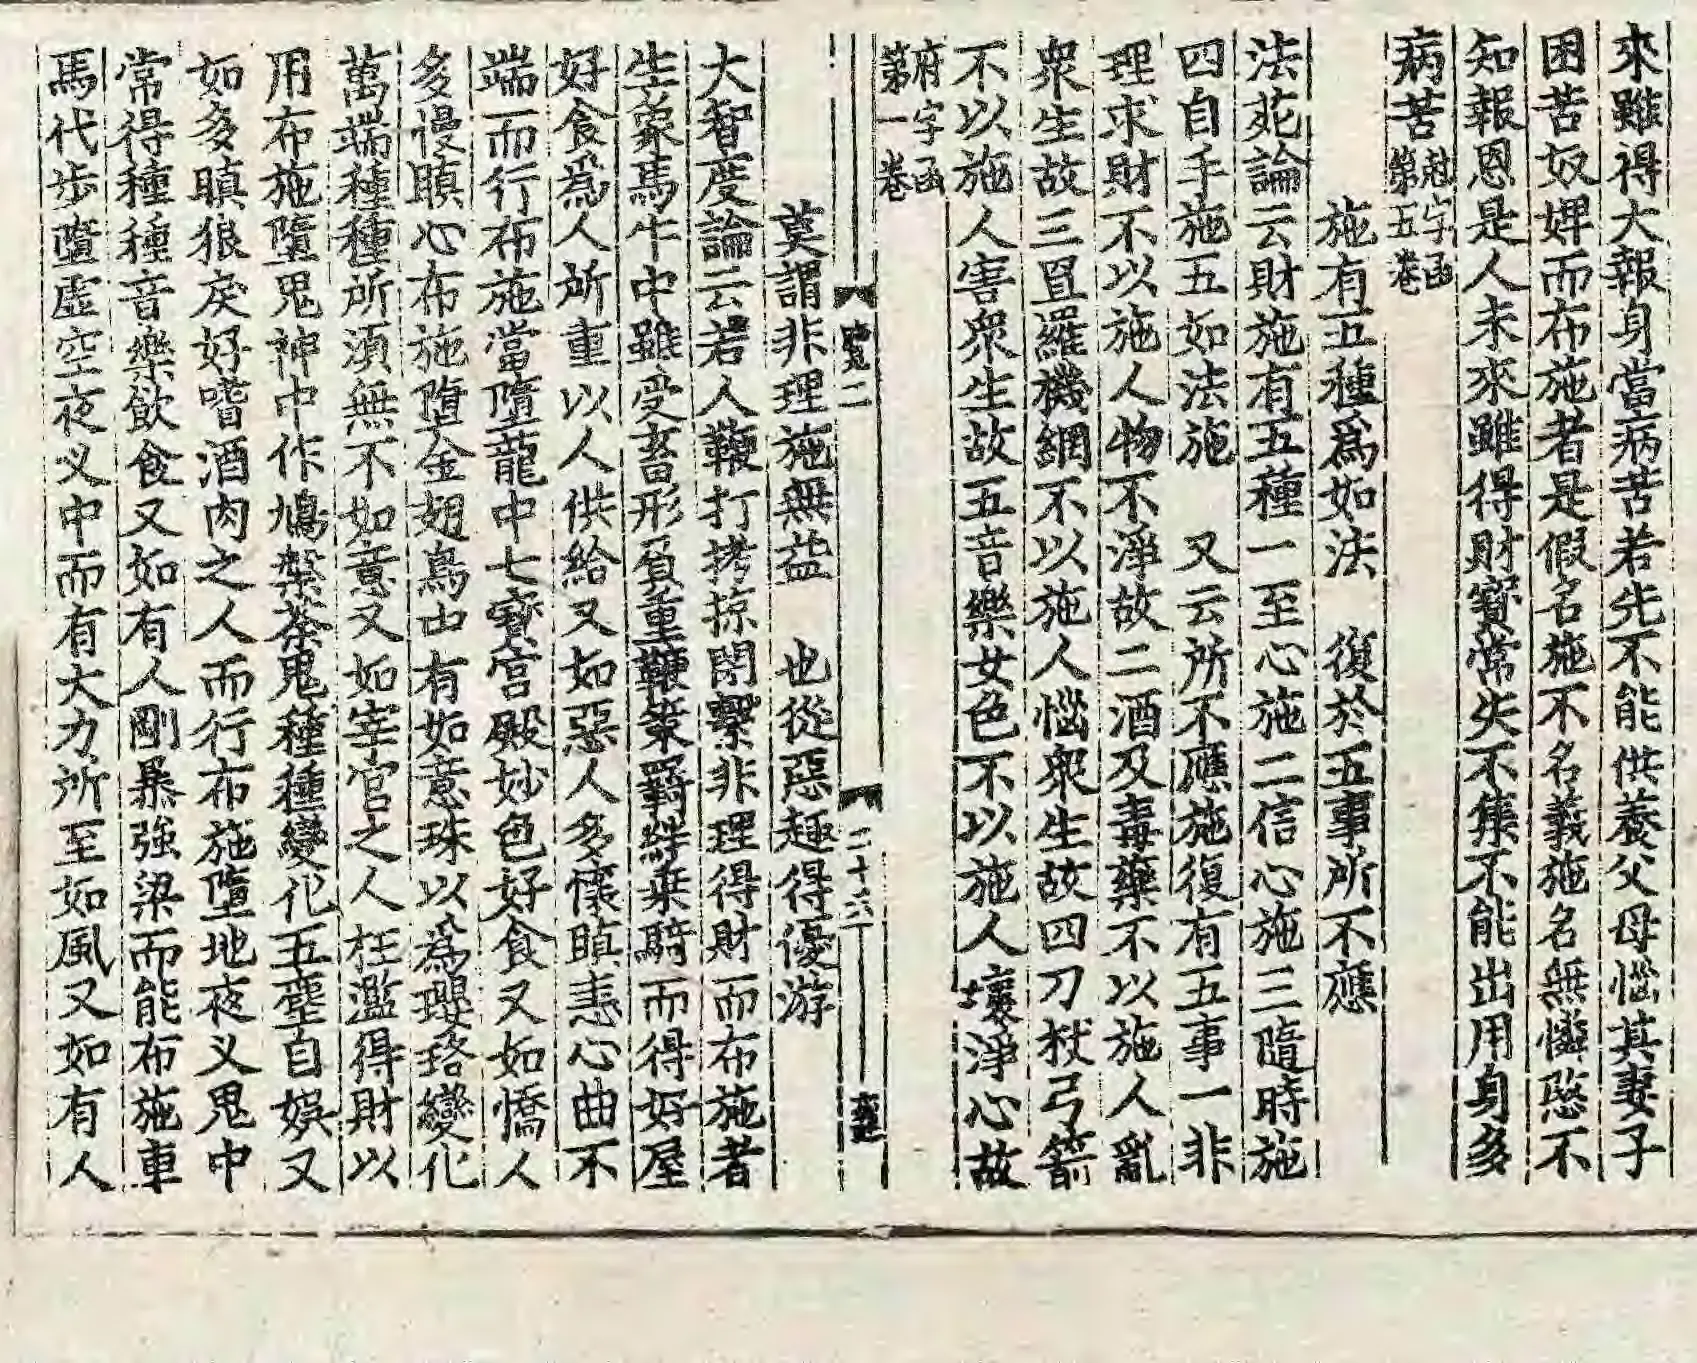 來雖得大報身當病苦若先不能供養父母惱其妻子
困苦奴婢而布施者是假名施不名義施名無憐愍不
知報恩是人未來雖得財寶常失不集不能出用身多
病苦
字函
第五卷
施有五種爲如法　復於五事所不應
法苑論云財施有五種一至心施二信心施三隨時施
四自手施五如法施　又云所不應施復有五事一非
理求財不以施人物不淨故二酒及毒藥不以施人亂
衆生故三罝羅機網不以施人惱衆生故四刀杖弓箭
不以施人害衆生故五音樂女色不以施人壞淨心故
府字函
第一卷
二十六
莫謂非理施無益　也從惡趣得優游
大智度論云若人鞭打拷掠閉繫非理得財而布施者
生象馬牛中雖受畜形負重鞭策羇絆乗騎而得好屋
好食爲人所重以人供給又如惡人多懷瞋恚心曲不
端而行布施當墮龍中七寶宮殿妙色好食又如憍人
多慢瞋心布施墮金翅鳥中有如意珠以爲瓔珞變化
萬端種種所須無不如意又如宰官之人枉濫得財以
用布施墮鬼神中作鳩槃荼鬼種種變化五塵自娛又
如多瞋狼戾好嗜酒肉之人而行布施墮地夜义鬼中
常得種種音樂飮食又如有人剛暴強梁而能布施車
馬代步墮虛空夜义中而有大力所至如風又如有人